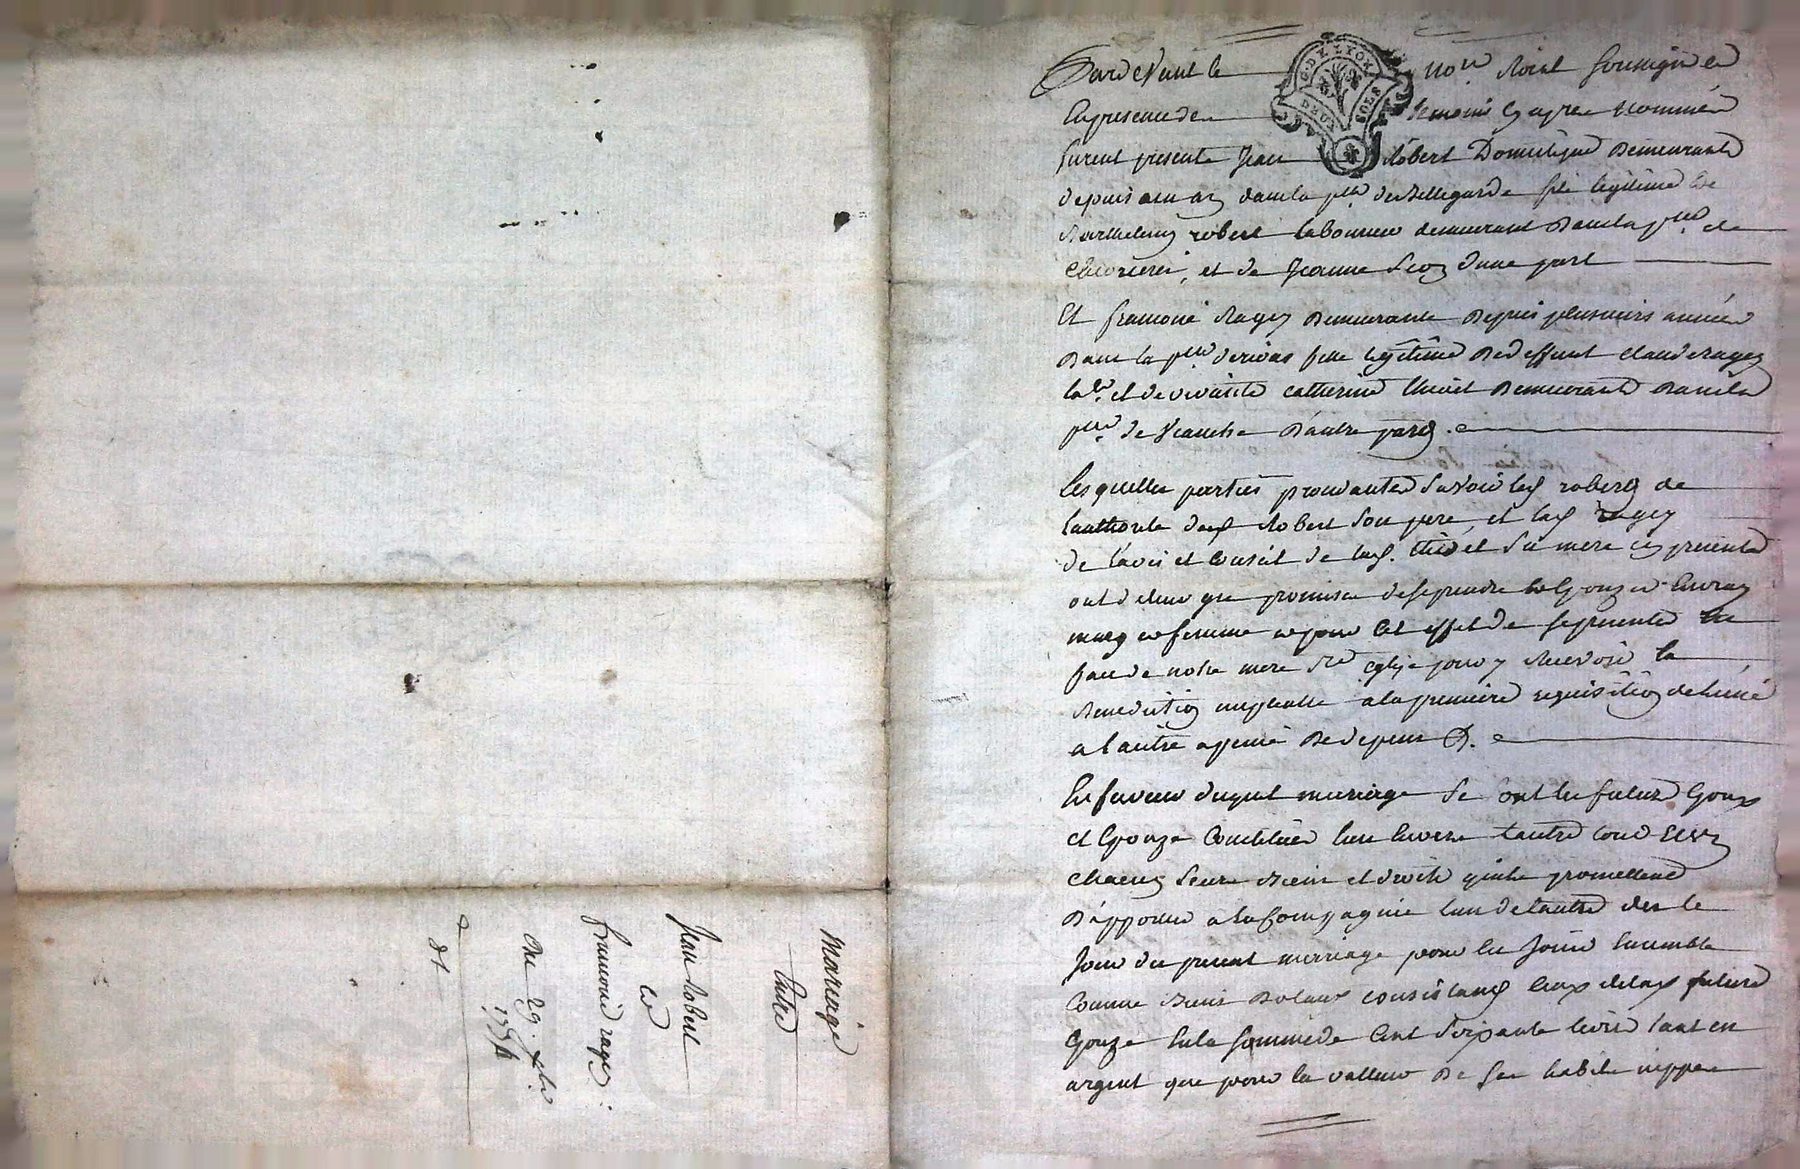 Mariage
Entre
Jean Robert
et
françoise ragey
Du 29. feb.
G. D. LYON
DEUX SOLS
Pardevant le Nore Roial soussigné et
En presence de temoins cy apres nommés
furent presents Jean Robert Domestique Demeurant
depuis un an dans la psse de Bellegarde fils legitime de
Barthelemy robert laboureur demeurant Dans la psse de
et de Jeanne d'une part
Et françoise Ragey Demeurante Depuis plusieurs années
Dans la psse de rivas fille legitime De deffunt claude ragey
labr et de vivante catherine thivet Demeurante Dans la
psse de Veauche D'autre part.
Lesquelles parties procedantes savoir led robert de
l'authorité dud Robert son pere, et lad ragey
de l'avis et conseil de lad. thivet sa mere cy presente
ont de leur gre promis de se prendre En vray
mary et femme et pour cet effet de se presenter En
face de notre mere Ste eglise pour y Recevoir la
Benediction nuptialle a la premiere requisition de l'un
a l'autre a peine De depens &.
En faveur duquel mariage Se sont les futurs Epoux
et Epouze Constitués l'un Envers l'autre tous Et un
chacun leurs Biens et droits qu'ils promettent
D'apporter a la Compagnie l'un de l'autre des le
Jour du present mariage pour En Jouir Ensemble
Comme Biens Dotaux consistants Ceux de lad future
Epouze En la somme de Cent Soixante livres tant en
argent que pour la valleur De ses habits nippes